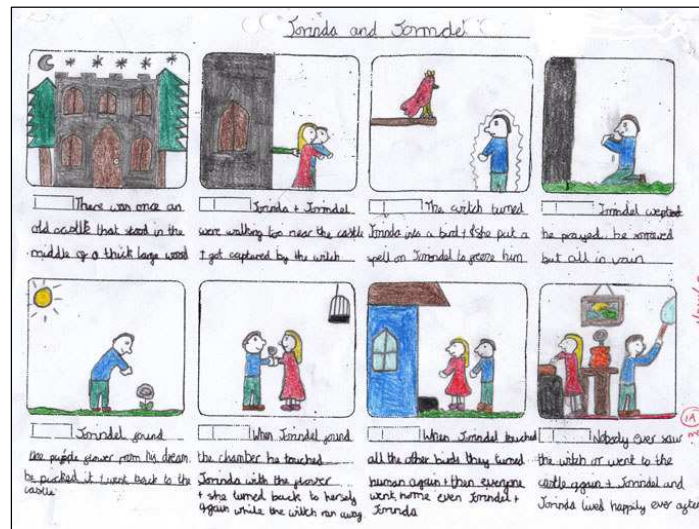 Jorinda and Jorindel
There was once an
old castle that stood in the
middle of a thick large wood
Jorinda + Jorindel
were walking too near the castle
& got captured by the witch
The witch turned
Jorinda into a bird + she put a
spell on Jorindel to freeze him
Jorindel weeped
he prayed, he sorrowed
but all in vain
Jorindel found
the purple flower from his dream.
he pucked it & went back to the
castle
When Jorindel found
the chamber he touched
Jorinda with the flower
+ she turned back to herself
again while the witch ran away
When Jorindel touched
all the other birds they turned
human again + then everyone
went home even Jorindel +
Jorinda
Nobody ever saw
the witch or went to the
castle again + Jorindel and
Jorinda lived happily ever after